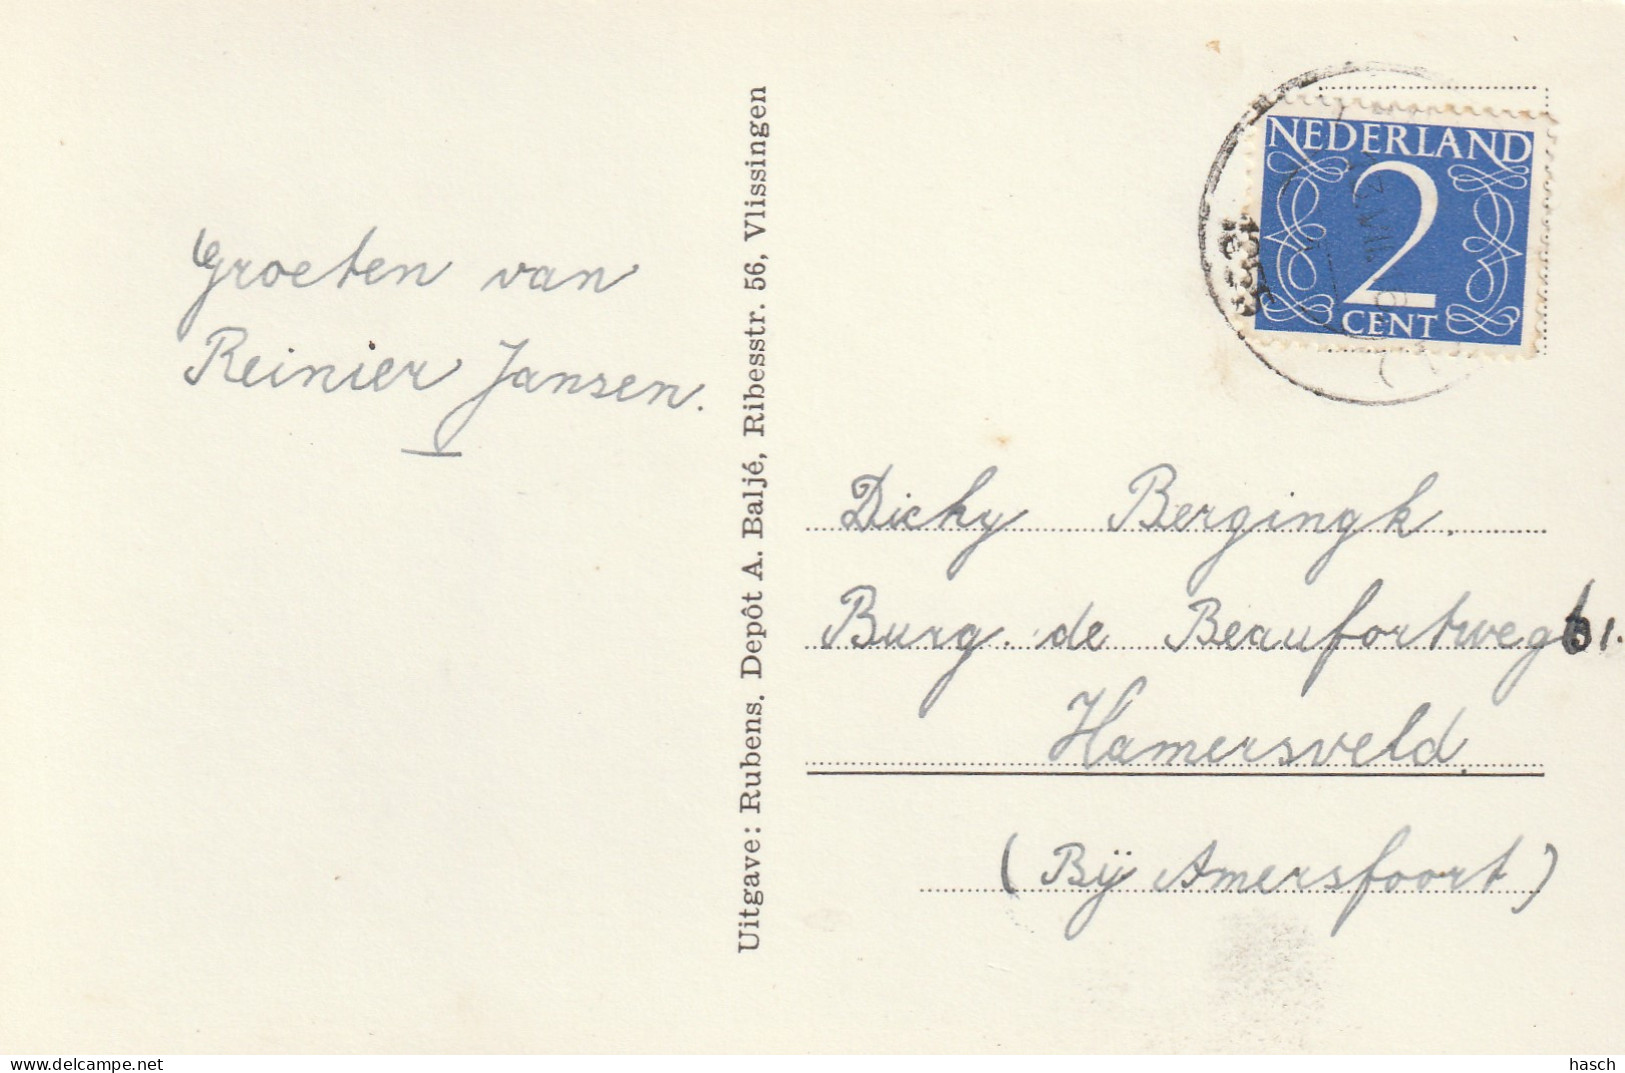 Groeten van
Reinier Jansen.
Uitgave: Rubens. Depôt A. Baljé, Ribesstr. 56, Vlissingen
NEDERLAND
2
CENT
Dicky Bergingk.
Burg. de Beaufortweg 61.
Hamersveld.
(Bij Amersfoort)
delcampe.net
hasch